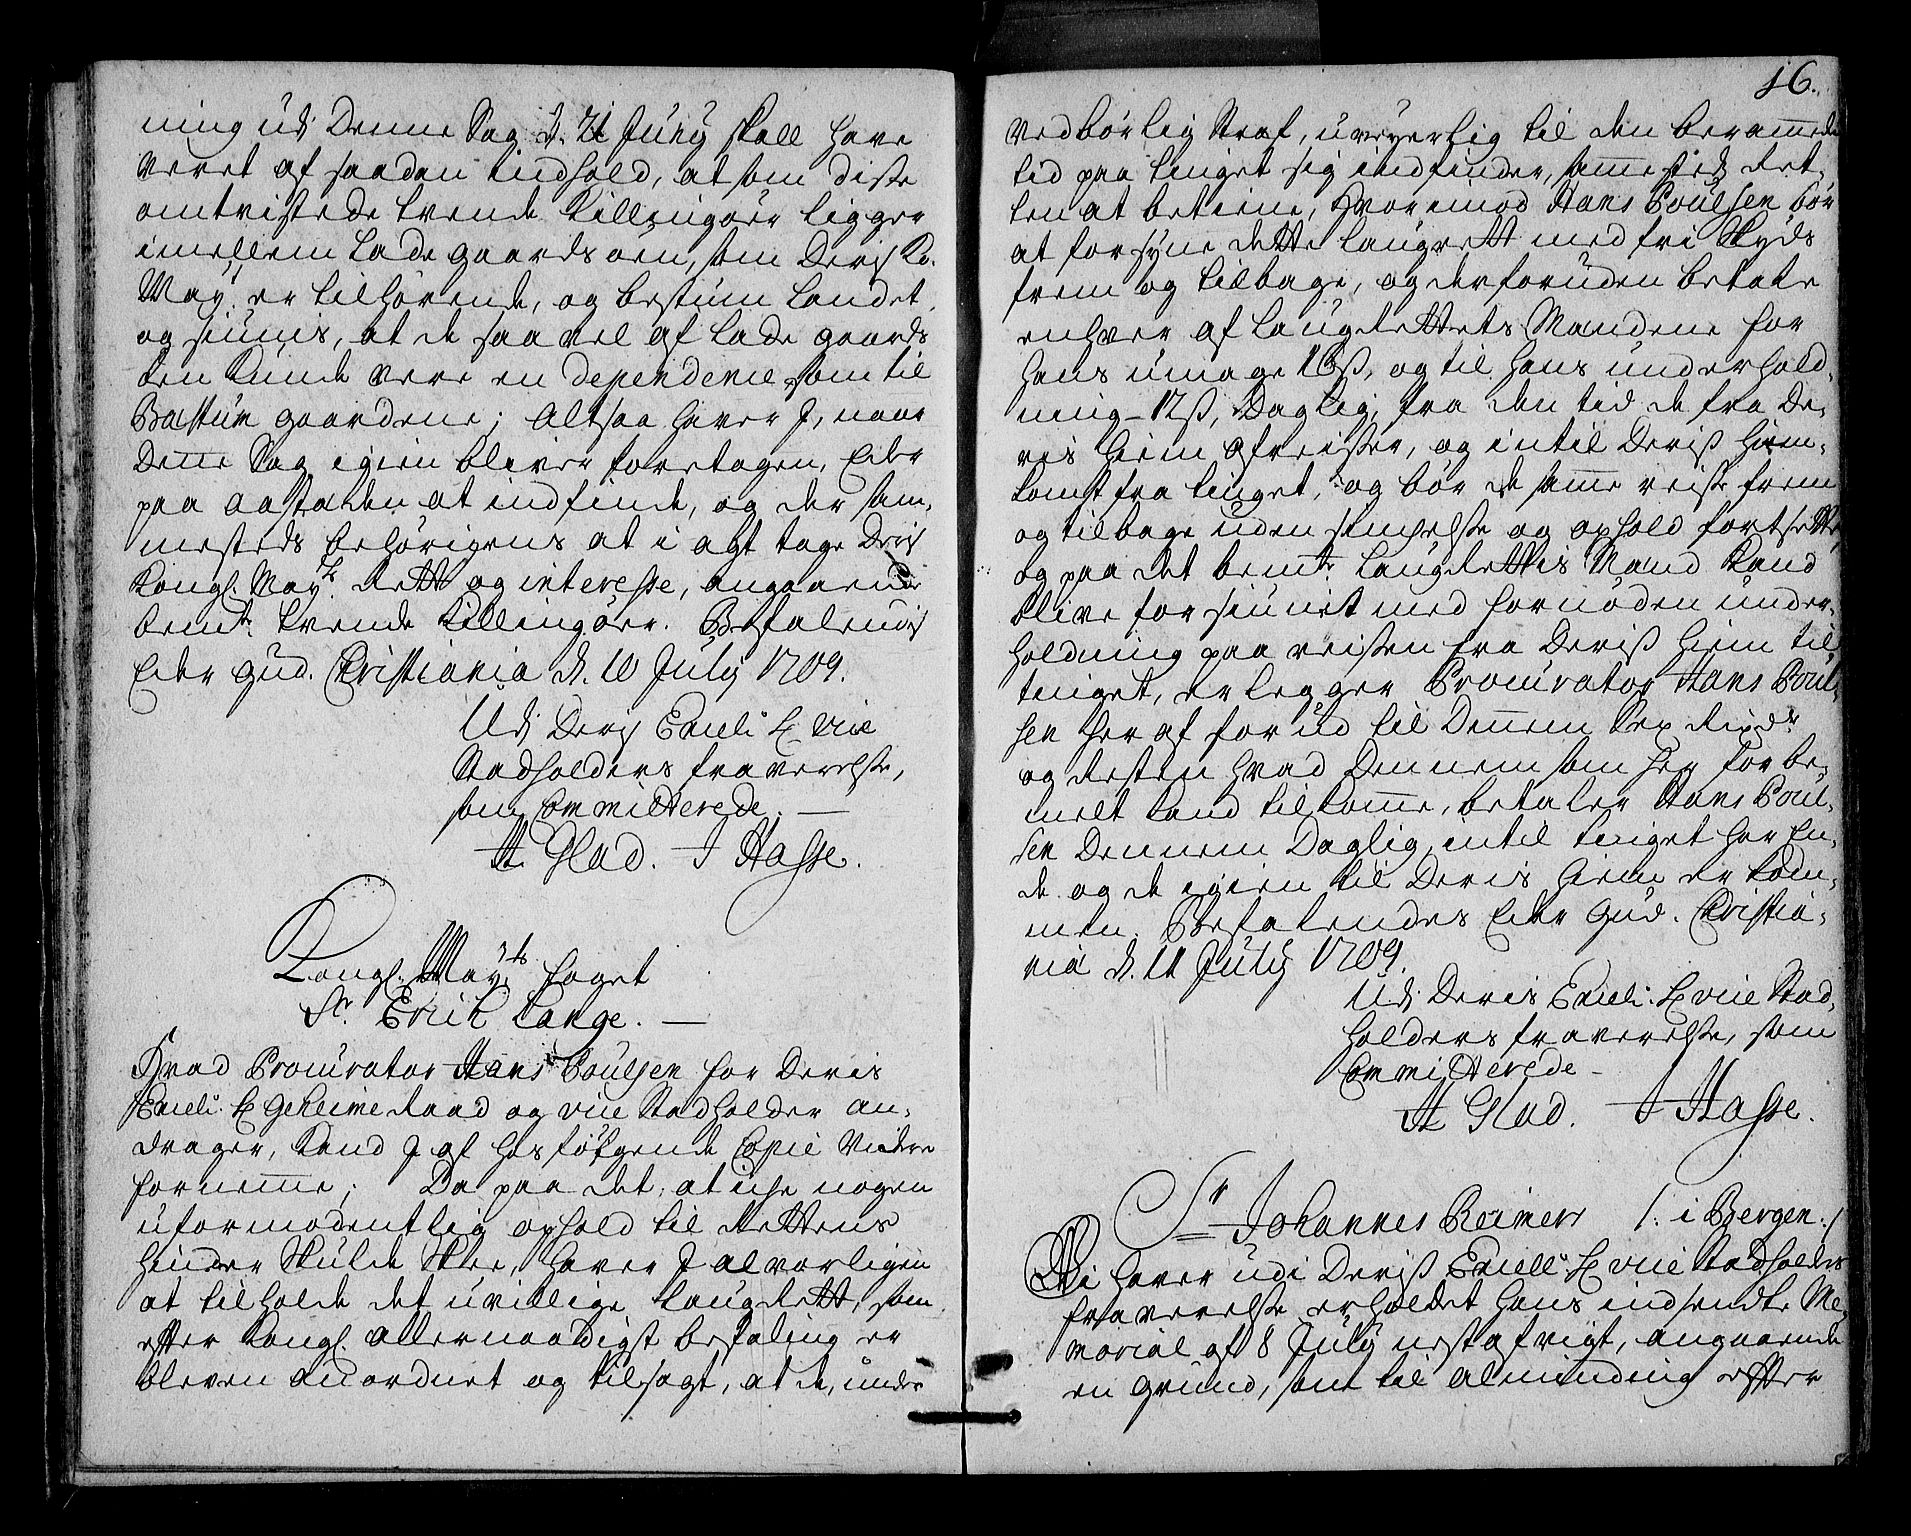 ning udi denne Sag d. 21 Juny skall have
veret af saadan indhold, at som disse
omtvistede tvende Killingøer ligger
imellem Ladegaards øen, som Deris Ko.
May: er tilhørende, og bestum Landet,
og siunis, at de saa vel af Lade gaards
øen kunde vere en dependence som til
Bæstum gaardene; altsaa haver I, naar
denne Sag igien bliver foretagen, Eder
paa aastæden at indfinde, og der sam,,
mesteds behørigens at i agt tage Deris
Kongl. May.ts Rett og interesse, angaaende
bemte. tvende Killingøer. Befalendis
Eder Gud. Christiania d. 10 July 1709.
Udi Deris Excell: H. vice
Stadholders fraverelse,
som Committerede. —
A Glad. J Hasse.
Kongl. May.ts foget
Sr. Erick Lange. —
Hvad Procurator Hans Poulsen for Deris
Excell: H Geheime Raad og vice Stadholder an,,
drager, kand I af hosføÿgende Copie videre
fornemme; Da paa det, at icke nogen
uformodentlig ophold til Rettens
hinder skulde skee, haver I alvorligen
at tilholde det uvillige Laugrett, som
efter Kongl. allernaadigst befaling er
bleven anordnet og tilsagt, at de, under
16.
vedbørlig straf, uveyerlig til den berammede
tid paa tinget sig indfinder, samme sted Ret,,
ten at betiene, hvorimod Hans Poulsen bør
at forsyne dette laugrett med fri skyds
frem og tilbage, og derforuden betale
enhver af Laugrettets Mændene for
hans umage 16ß, og til hans underhold,,
ning 12ß, Daglig, fra den tid de fra De,,
ris hiem afreisser, og intil Deriß hiem,,
komst fra tinget, og bør de samme reise frem
og tilbage uden simhelse og ophold fortsette,
og paa det bemte. Laugrettis Mænd kand
blive forsiunet med fornøden under,,
holdning paa reissen fra Deriß hiem til
tinget, erlegger Procurator Hans Poul,,
sen her af forud til Dennem Sex Rixdr.
og Resten hvad Dennem som her forbe,,
melt kand tilkomme, betaler Hans Poul,,
sen Dennem Daglig, intil tinget har En,,
de og de igien til Deris hiem er kom,,
men. Befalendes Eder Gud. Christia,,
nia d. 11 July 1709.
Udi Deris Excell: H vice Stad,,
holders fraverelse, som
Committerede —
A Glad. J Hasse.
Sr Johannes Reimers /: i Bergen :/
Vi haver udi Deriß Excell: H vice Stadholders
fraverelse erholdet hans indsendte Me,,
morial af 8 July nest afvigt, angaaende
en grund, som til alminding efter